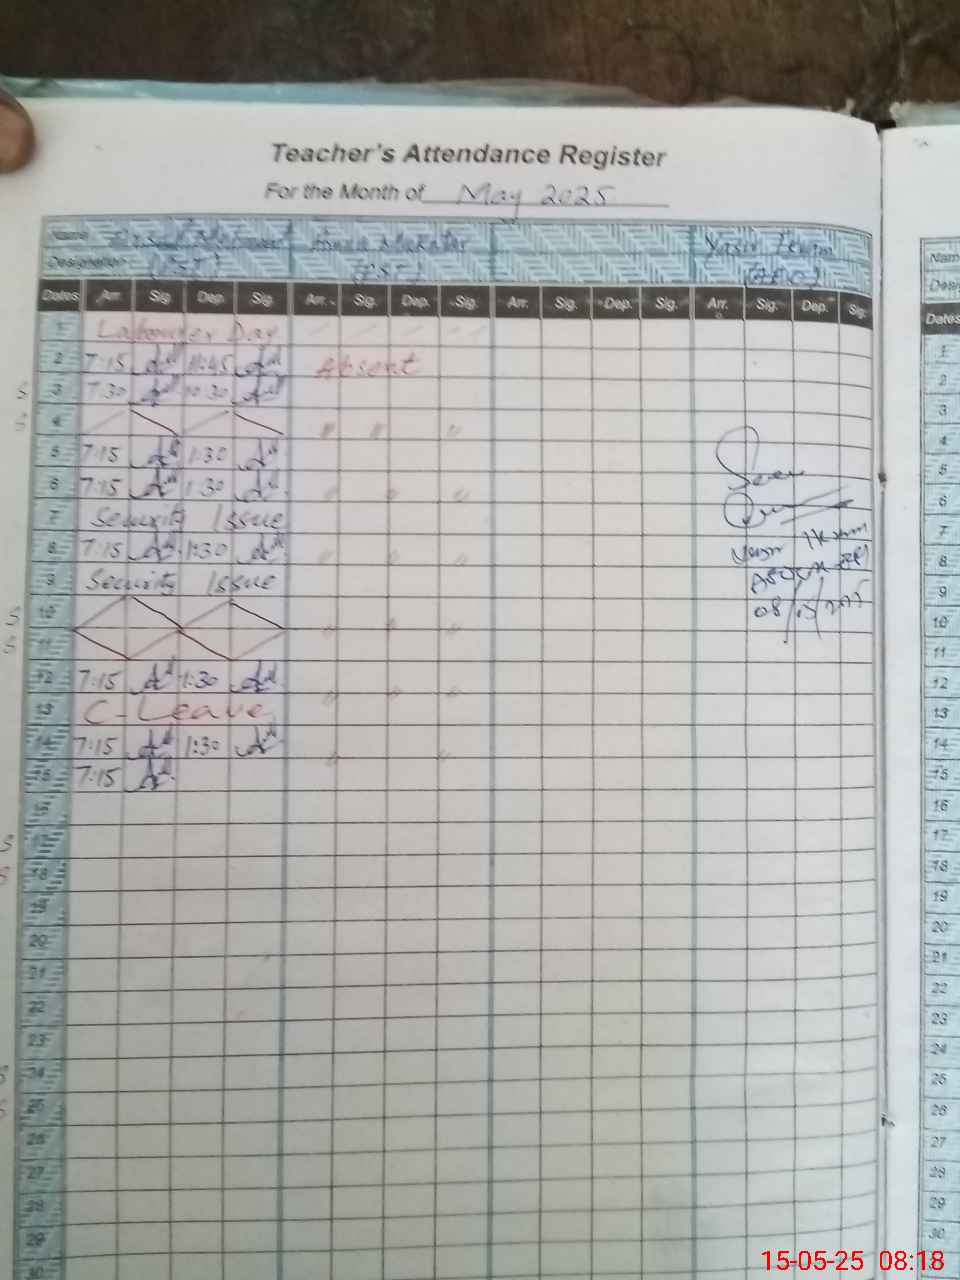 Teacher's Attendance Register
For the Month of May 2025
Name Amna Mukhtar Yasir Ikram
Designation (PST) (PST) (AEO)
Dates Arr. Sig. Dep. Sig. Arr. Sig. Dep. Sig. Arr. Sig. Dep. Sig. Arr. Sig. Dep. Sig.
1 Labourer Day
2 7:15 11:45 Absent
3 7:30 10:30
4 " " "
5 7:15 1:30
6 7:15 1:30 " " "
7 Security Issue
8 7:15 1:30 " " "
9 Security Issue
10 " " "
11
12 7:15 1:30 " " "
13 C-Leave
14 7:15 1:30 " "
15 7:15
16
17
18
19
20
21
22
23
24
25
26
27
28
29
30
S
S
S
S
S
S
S
S
Seen
Yasir Ikram
08/05/2025
Dates
1
2
3
4
5
6
7
8
9
10
11
12
13
14
15
16
17
18
19
20
21
22
23
24
25
26
27
28
29
30
15-05-25 08:18